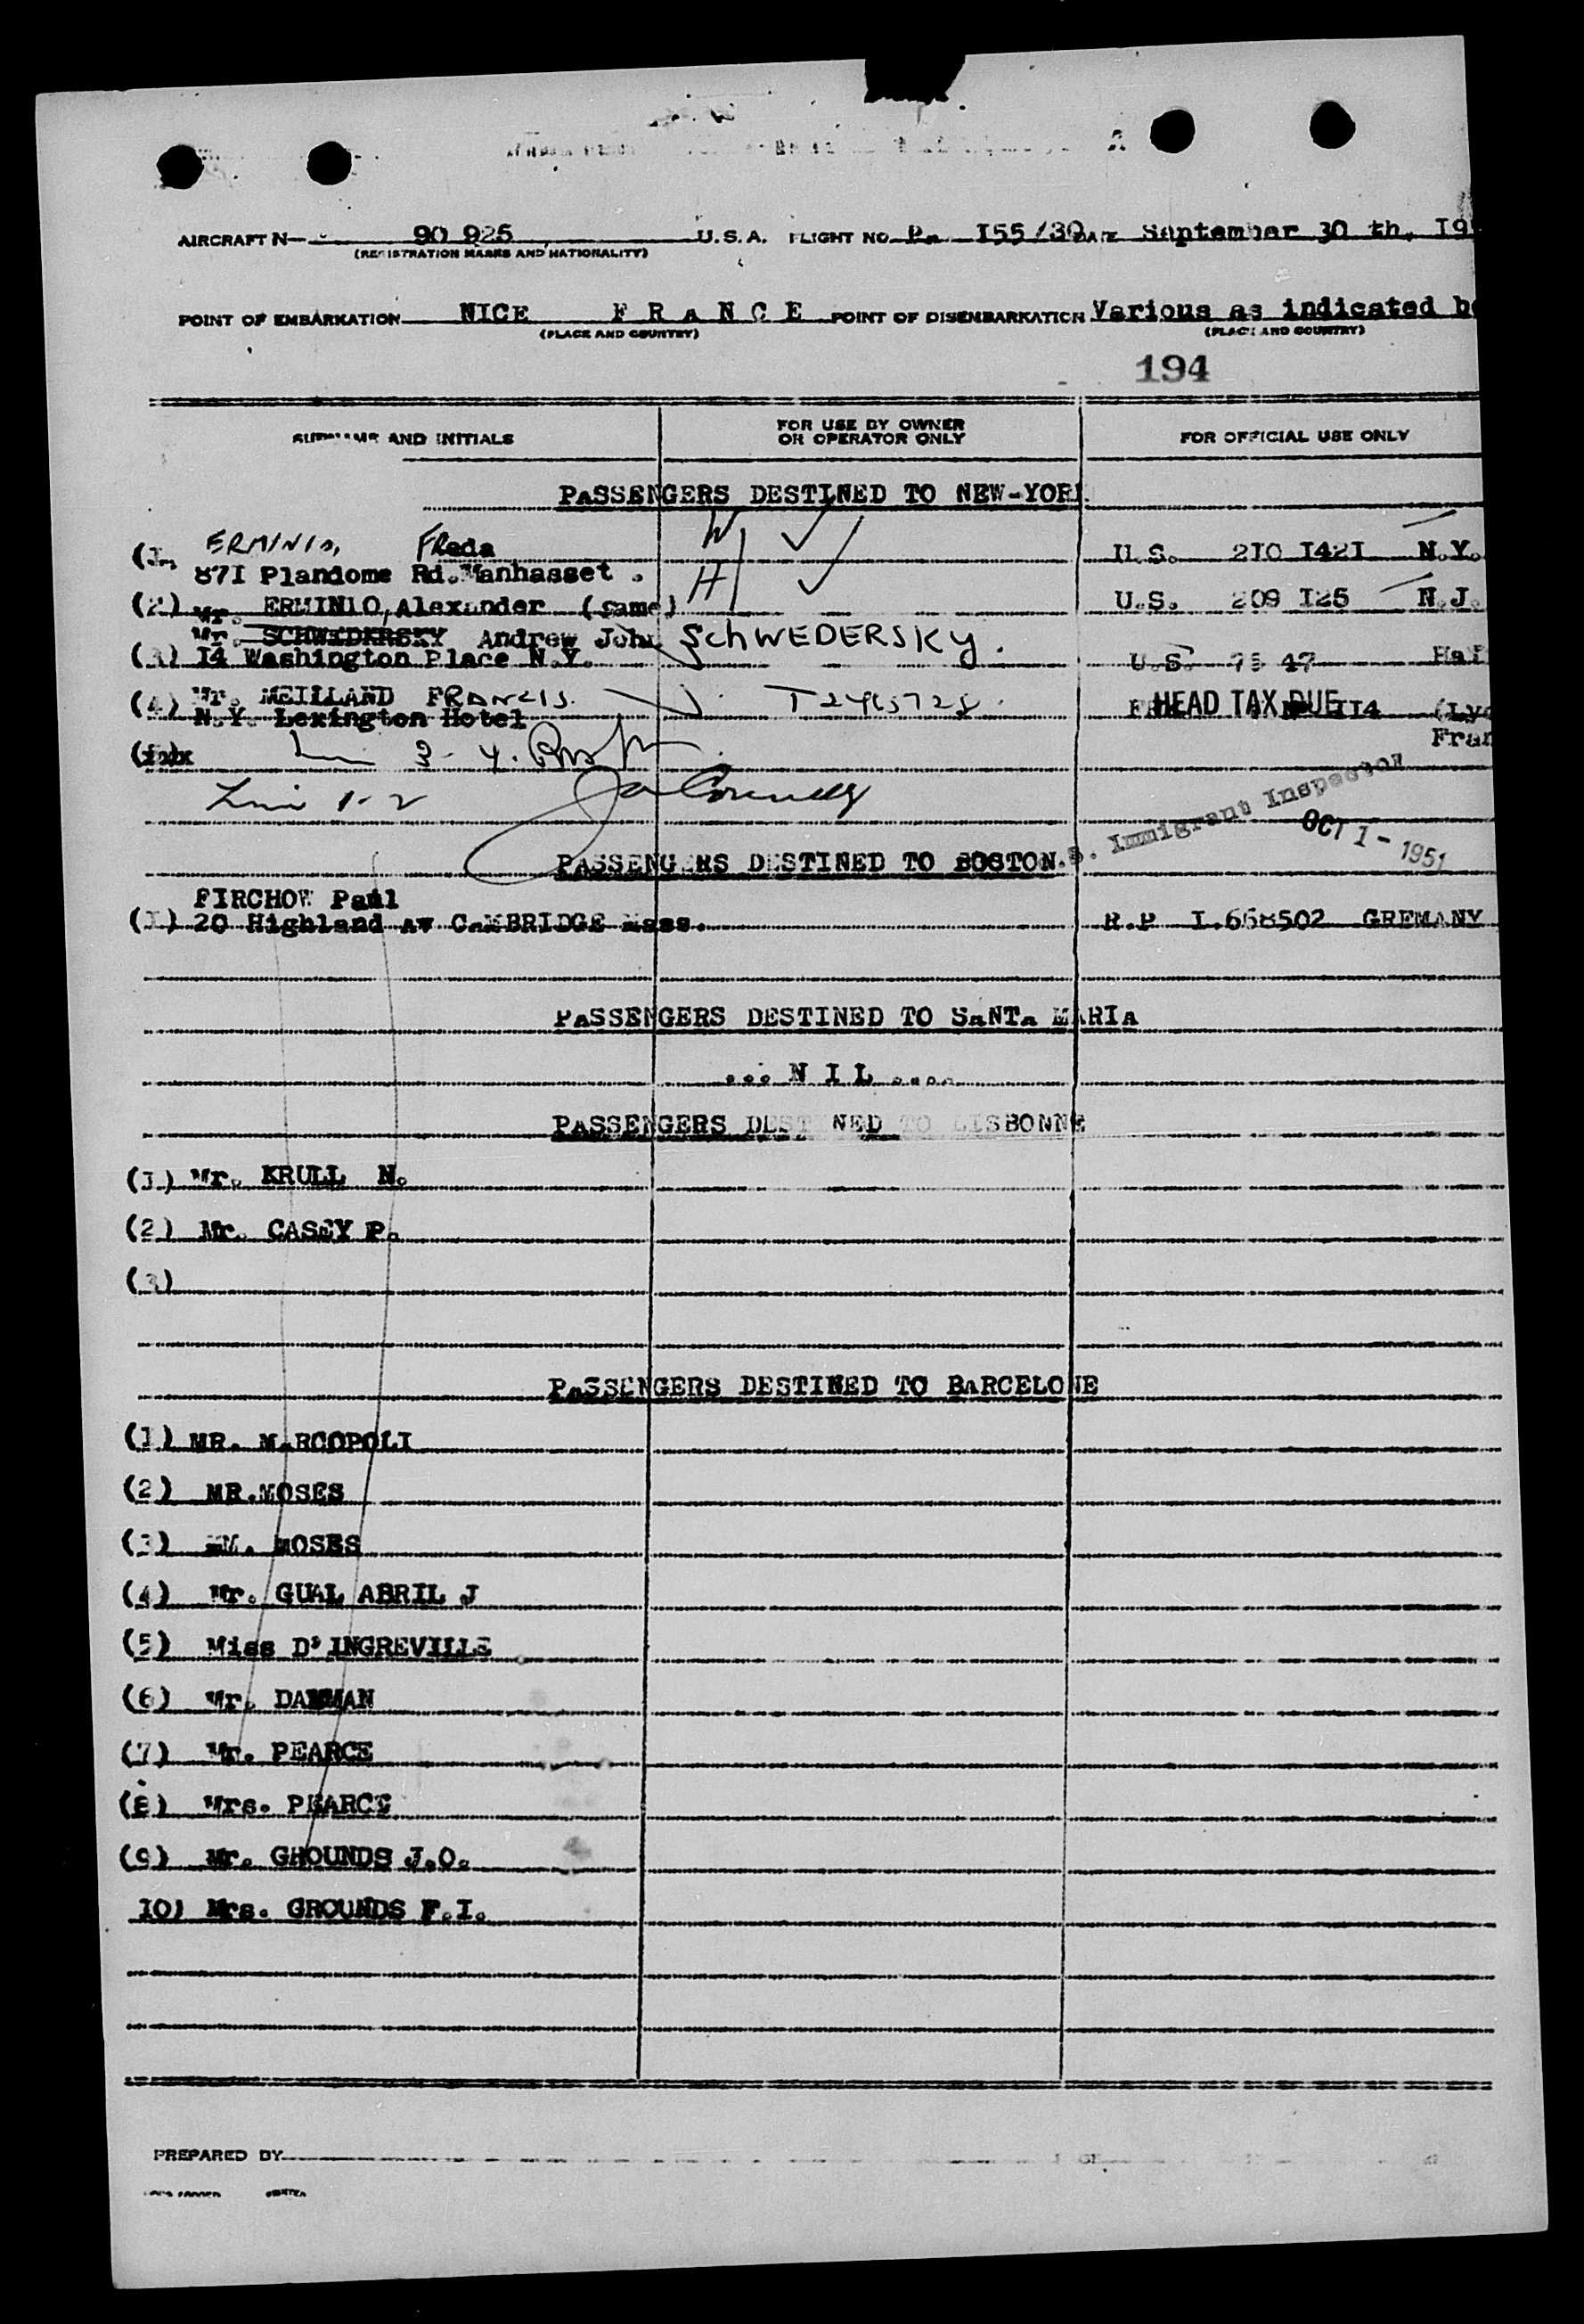 AIRCRAFT N- 90 925 U.S.A. FLIGHT NO. Pa 155/30 DATE September 30 th, 19
(REGISTRATION MARKS AND NATIONALITY)
POINT OF EMBARKATION NICE F R A N C E POINT OF DISEMBARKATION Various as indicated be
(PLACE AND COUNTRY) (PLACE AND COUNTRY)
194
SURNAME AND INITIALS FOR USE BY OWNER OR OPERATOR ONLY FOR OFFICIAL USE ONLY
PASSENGERS DESTINED TO NEW-YORK
(I. ERMINIO, FReda W U.S. 2I0 I42I N.Y.
87I Plandome Rd. Manhasset . H
(2) Mr. ERMINIO, Alexander (same) U.S. 209 I25 N.J.
Mr. SCHWEDERSKY Andrew John SchWEDERSKY.
(3) I4 Washington Place N.Y. U.S. 47
(4) Mr. MEILLAND FRANCIS. HEAD TAX DUE II4 (Ly
N.Y. Lexington Hotel Fran
3-4.
1-2
Immigrant Inspector
OCT 1 - 1951
PASSENGERS DESTINED TO BOSTON
FIRCHOW Paul
(I) 20 Highland AV CAMBRIDGE Mass. R.P I.668502 GREMANY
PASSENGERS DESTINED TO SANTA MARIA
... N I L ....
PASSENGERS DESTINED TO LISBONNE
(I) Mr. KRULL N.
(2) Mr. CASEY P.
(3)
PASSENGERS DESTINED TO BARCELONE
(I) MR. MARCOPOLI
(2) MR.MOSES
(3) MM. MOSES
(4) Mr. GUAL ABRIL J
(5) Miss D'INGREVILLE
(6) Mr. DAMMAN
(7) Mr. PEARCE
(8) Mrs. PEARCE
(9) Mr. GROUNDS J.O.
IO) Mrs. GROUNDS F.I.
PREPARED BY